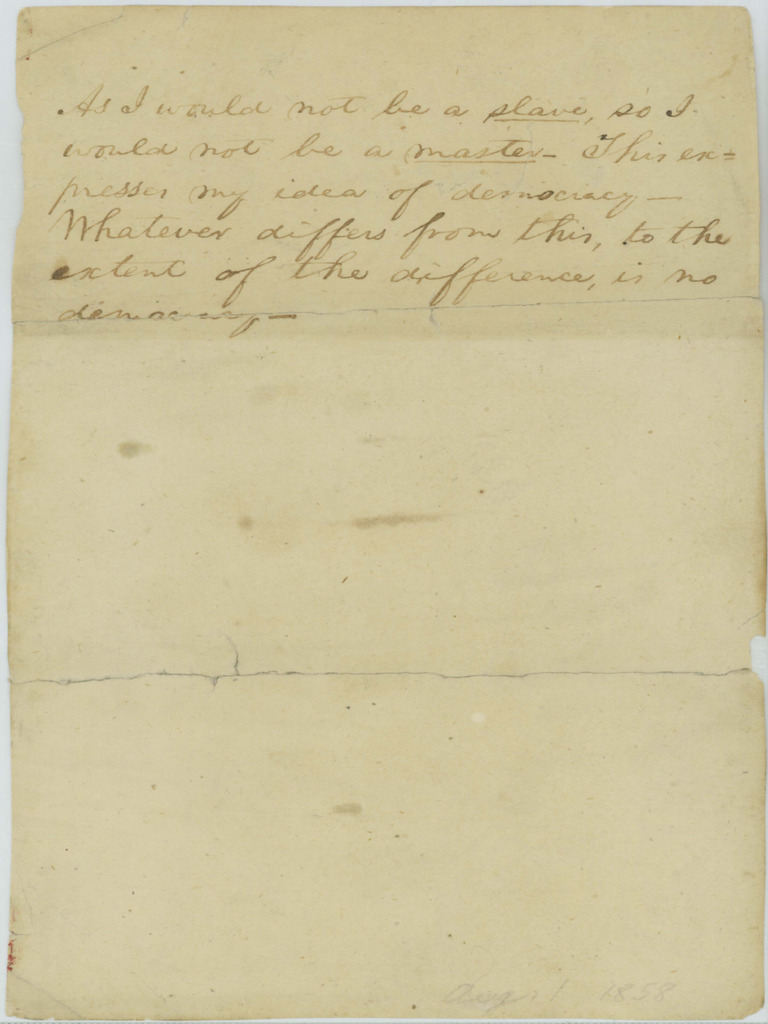 As I would not be a slave, so I
would not be a master– This ex=
presses my idea of democracy–
Whatever differs from this, to the
extent of the difference, is no
democracy–
Aug 1 1858